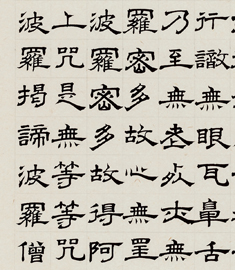 行識無眼耳鼻舌
乃至無老死亦無
羅密多故心無罣
波羅密多故得阿
上咒是無等等咒
波羅揭諦波羅僧